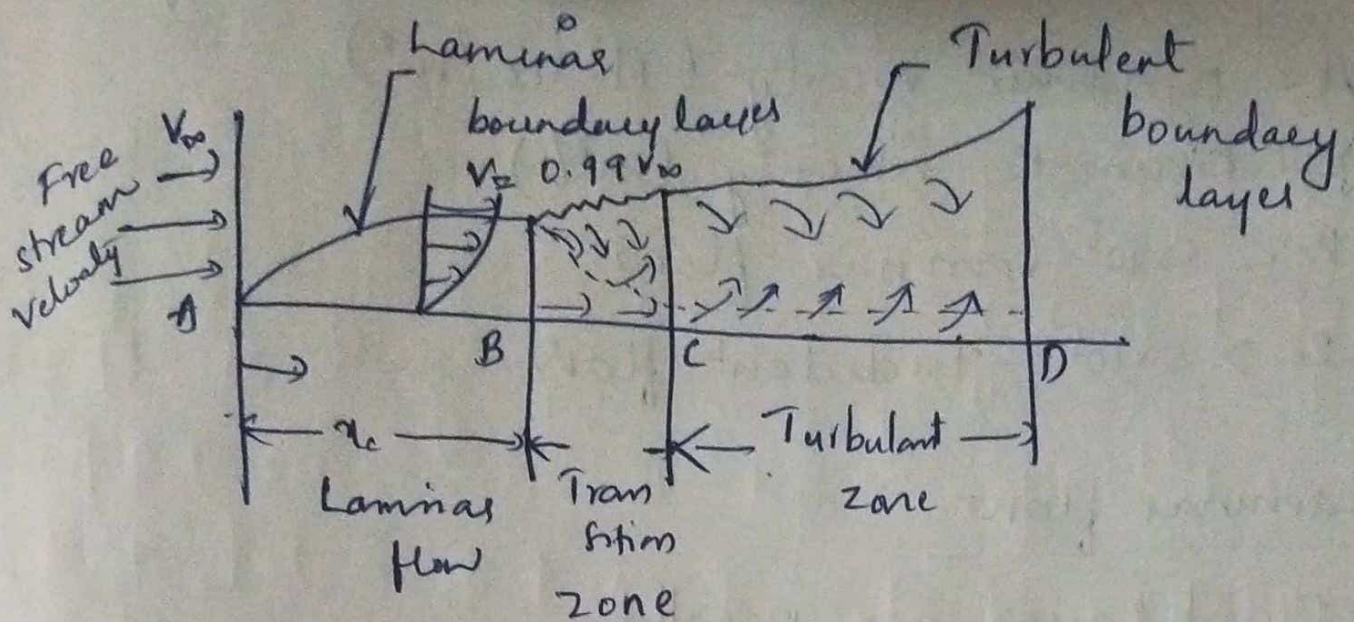 Laminar
boundary layer
Turbulent
boundary
layer
V∞
Free
stream
velocity
V= 0.99 V∞
A
B
C
D
xc
Laminar
flow
Tran
sition
zone
Turbulant
zone